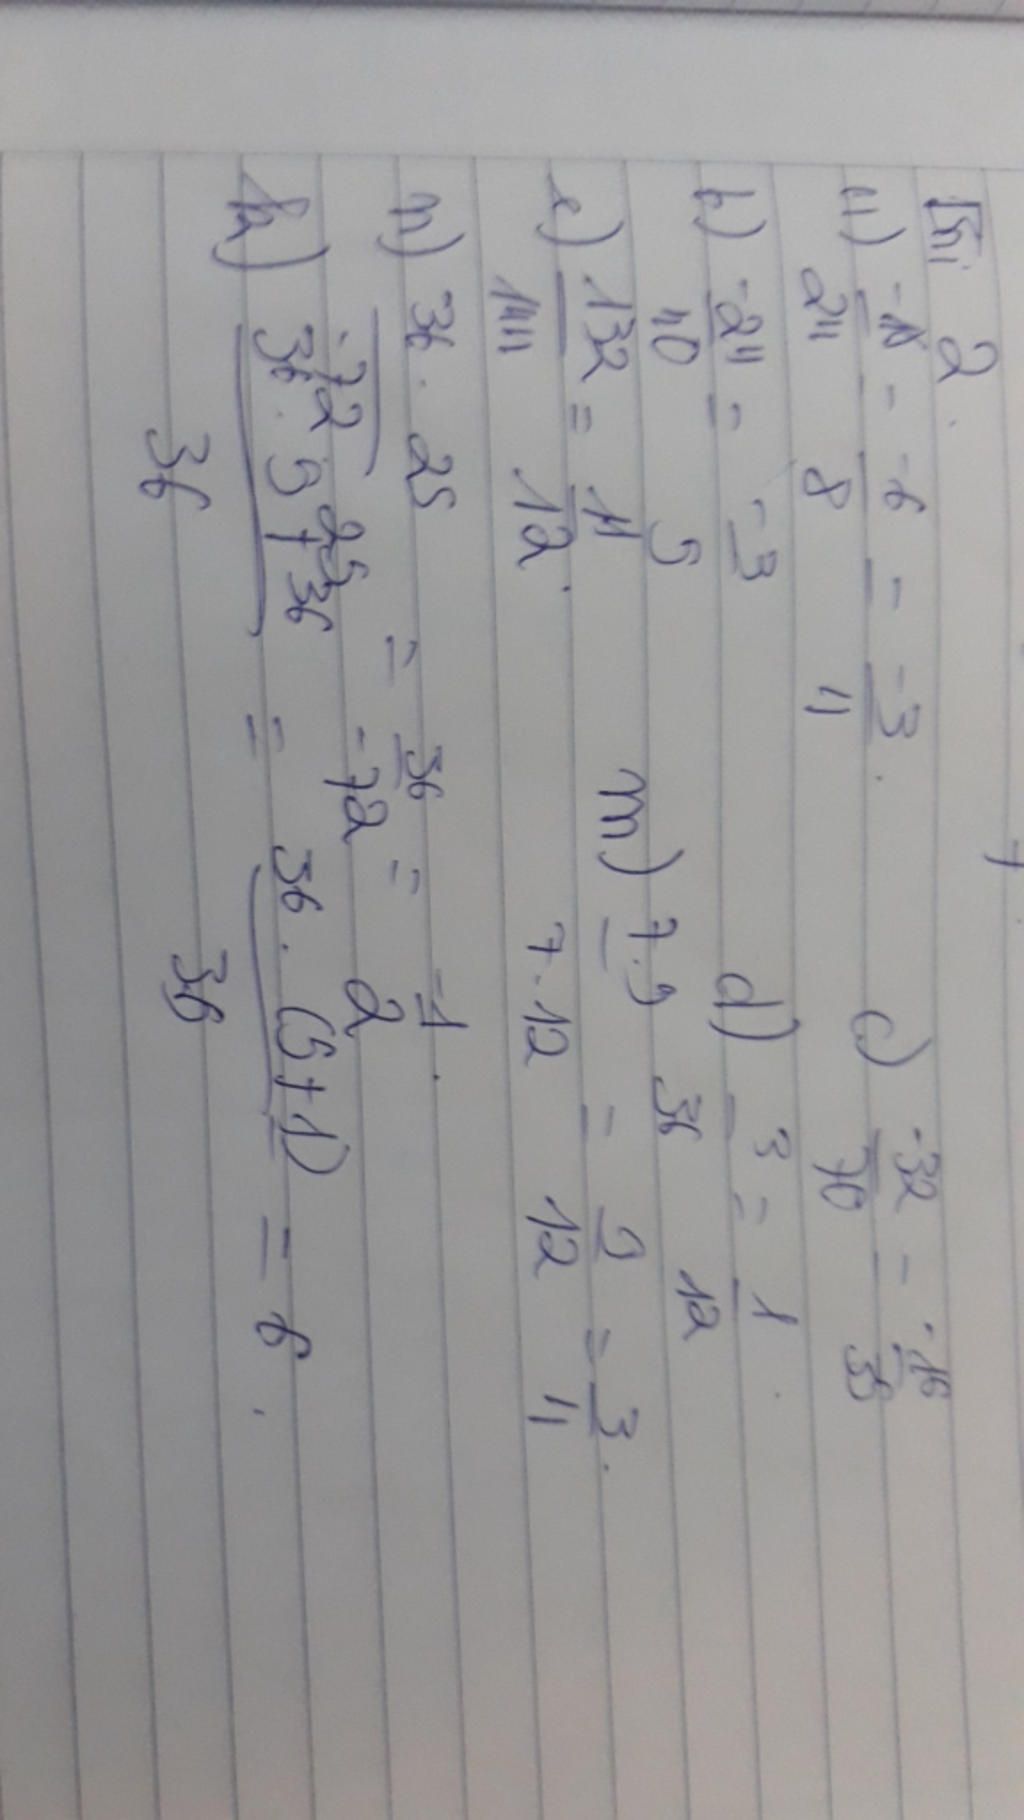 Bài 2.
a) -18/24 = -6/8 = -3/4.
c) -32/70 = -16/35
b) -24/40 = -3/5
d) 3/36 = 1/12.
e) 132/144 = 11/12.
m) 7.9/7.12 = 9/12 = 3/4.
n) 36.25/-72.25 = 36/-72 = -1/2.
k) 36.5+36/36 = 36.(5+1)/36 = 6.